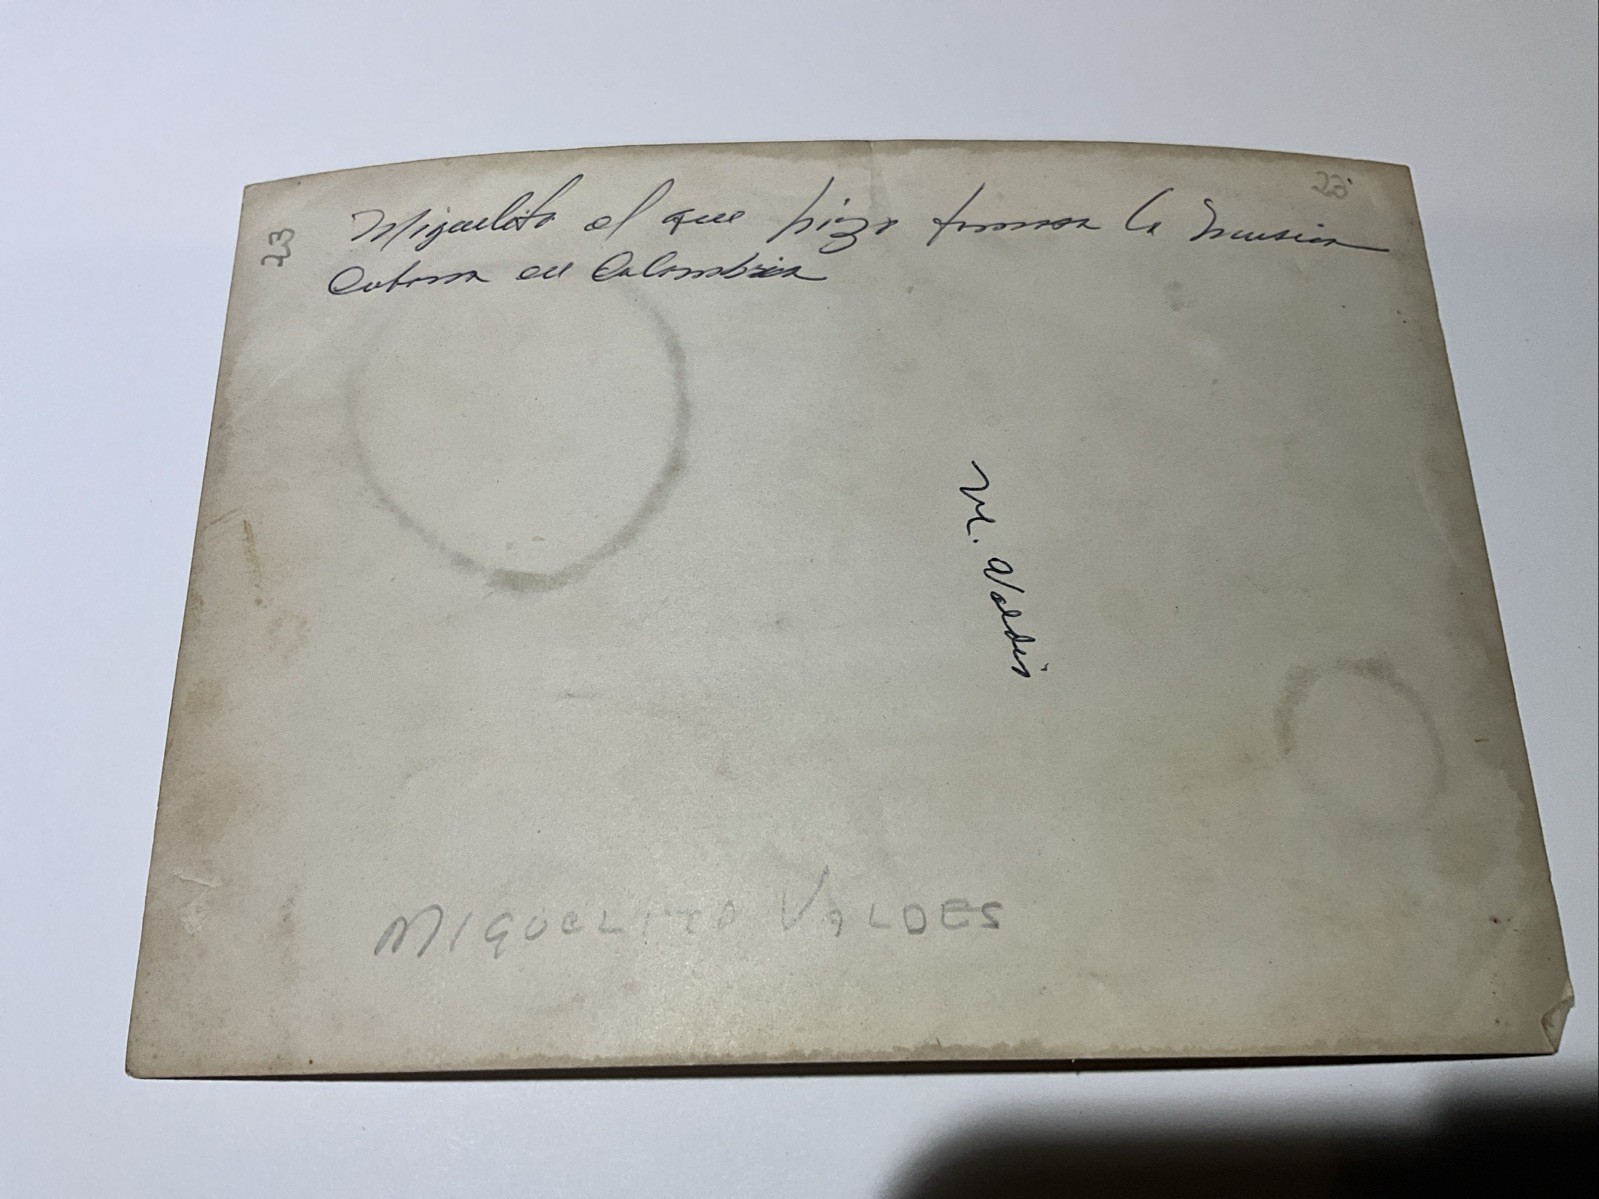 23
23
Miguelito el que hizo famosa la musica
Cubana en Colombia
M. Valdés
MIGUELITO VALDES